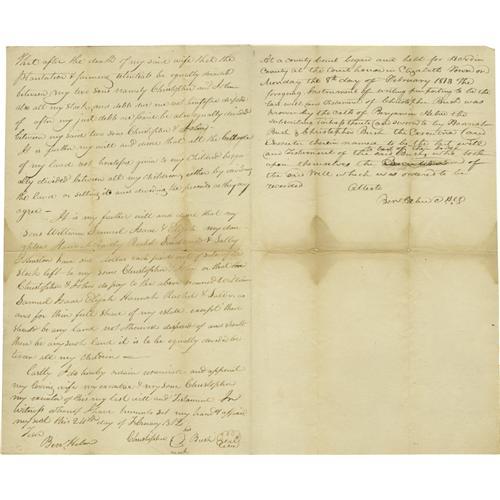 That after the death of my said wife that the
plantation & farming utentials be equally devided
between my two sons namely Christopher and John
also all my stock and debts are not heretofore disposed
of after my just debts are paid be also equally devided
between my said two sons Christopher & John
It is further my will and desire that all the ballance
of my land not heretofore given to my Children be equ
ally devided between all my children either by deviding
the land or selling it and deviding the proceeds as they may
agree —
It is my further will and desire that my
sons William Samuel Isaac & Elijah my dau
ghters Hannah
Johnston have one dollar each paid out of
stock left to my sons Christopher & John or that
Christopher & John do pay to the above named William
Samuel Isaac Elijah Hannah Rachel & Sally as
and for their full share of my estate except there
should be any land not otherwise disposed of and should
there be any such land it is to be equally devided be
tween all my children —
Lastly I do hereby ordain nominate and appoint
my loving wife my executrix & my son Christopher
my executor of this my last will and Testament In
witness whereof I have hereunto set my hand & affixed
my seal this 24th day of February 1812
Teste
Ben Helm Christopher his mark Bush Seal
At a county court begun and held for Hardin
County at the Court house in Elizabeth Town on
Monday the 8th day of February 1813 The
foregoing Instrument of writing purporting to be the
last will and testament of Christopher Bush was
proven by the oath of Benjamin Helm the
subscribing witness thereto and sworn to by Hannah
Bush & Christopher Bush the Executrix and
Executor therein named to be the last will
and testament of the said Bush who took
upon themselves the Execution of
the said Will which was ordered to be
recorded
Atteste
Ben Helm